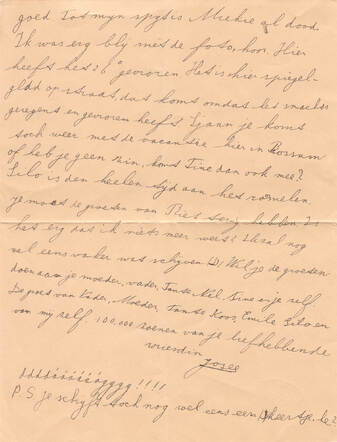 goed. Tot mijn spijt is Miekie al dood.
Ik was erg blij met de foto, hoor. Hier
heeft het 26° gevroren Het is hier spiegel-
glad op straat, dat komt omdat het snachts
geregent en gevroren heeft. Sjann je komt
toch weer met de vacantie hier in Rossum
of heb je geen zin, komt Tine dan ook mee?
Lilo is den heelen tijd aan het rommelen.
je moest de groeten van Piet terug hebben. Is
het erg dat ik niets meer weet? Ik sal nog
wel eens vaker wat schijven. Wil je de groeten
doen aan je moeder, vader, Tante Nel, Tine en je self.
De groet van Vader, Moeder, Tante Koos, Emile Lilo en
van my self. 100.000 zoenen van je liefhebbende
vriendin
Josee
!!!!
P.S. je schyft toch nog wel eens een keertje, hè?